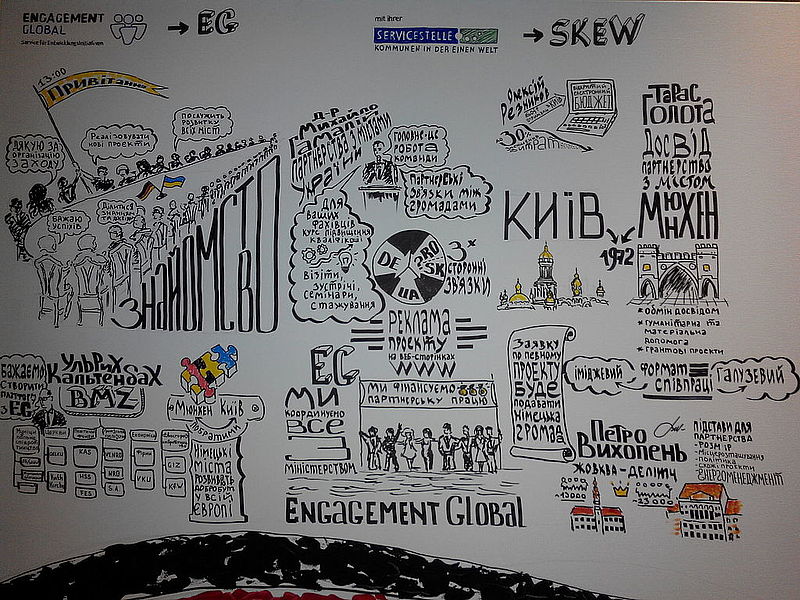 ENGAGEMENT
GLOBAL
Service für Entwicklungsinitiativen
→ EG
mit ihrer
SERVICESTELLE
KOMMUNEN IN DER EINEN WELT
→ SKEW
13:00
Привітання
ДЯКУЮ ЗА
ОРГАНІЗАЦІЮ
ЗАХОДУ
Реалізовувати
нові проекти
ПОСЛУЖИТЬ
РОЗВИТКУ
ВСІХ МІСТ
БАЖАЮ
УСПІХІВ
ЗНАЙОМСТВО
Д-Р
Михайло
ПАРТНЕРСТВА З МІСТАМИ
УКРАЇНИ
ГОЛОВНЕ-ЦЕ
РОБОТА
КОМАНДИ
ПАРТНЕРСЬКІ
ЗВ'ЯЗКИ МІЖ
ГРОМАДАМИ
ДЛЯ
ВАШИХ
ФАХІВЦІВ
КУРС ПІДВИЩЕННЯ
КВАЛІФІКАЦІЇ
ВІЗИТИ,
ЗУСТРІЧІ,
СЕМІНАРИ,
СТАЖУВАННЯ
DE
UA
3х
СТОРОННІ
ЗВ'ЯЗКИ
РЕКЛАМА
ПРОЕКТУ
НА ВЕБ-СТОРІНКАХ
WWW
Олексій
Резніков
ВІДКРИТИЙ
ЕЛЕКТРОННИЙ
БЮДЖЕТ
ТАРАС
ГОЛОТА
ДОСВІД
ПАРТНЕРСТВО
З МІСТОМ
МЮНХЕН
КИЇВ
1972
* ОБМІН ДОСВІДОМ
* ГУМАНІТАРНА ТА
МАТЕРІАЛЬНА
ДОПОМОГА
* ГРАНТОВІ ПРОЕКТИ
БАЖАЄМО
СТВОРИТИ
ЕС
УЛЬРИХ
КАЛЬТЕНБАХ
BMZ
KAS
HSS
FES
GIZ
KFW
МЮНХЕН КИЇВ
ПОБРАТИМИ
НІМЕЦЬКІ
МІСТА
РОЗВИВАЮТЬ
ДОБРОБУТ
У ВСІЙ
ЄВРОПІ
EG
МИ
КООРДИНУЄМО
ВСЕ
З
МІНІСТЕРСТВОМ
МИ ФІНАНСУЄМО
ПАРТНЕРСЬКУ ПРАЦЮ
ENGAGEMENT GLOBAL
Заявку
по певному
ПРОЕКТУ
БУДЕ
ПОДАВАТИ
НІМЕЦЬКА
ГРОМАДА
ІМІДЖЕВИЙ
ФОРМАТ
СПІВПРАЦІ
ГАЛУЗЕВИЙ
ПЕТРО
ВИХОПЕНЬ
ЖОВКВА-ДЕЛІТЧ
ПІДСТАВИ ДЛЯ
ПАРТНЕРСТВА
- РОЗМІР
- МІСЦЕРОЗТАШУВАННЯ
- ПОЛІТИКА
- СХОЖІ ПРОЕКТИ
- ЕНЕРГОМЕНЕДЖМЕНТ